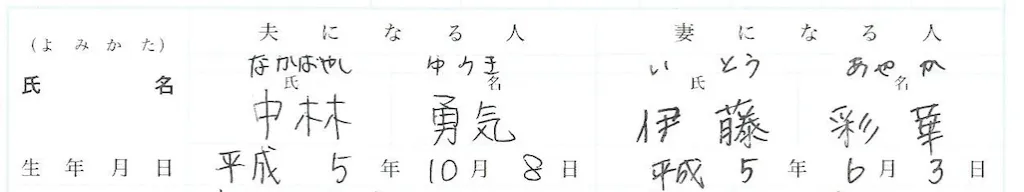 夫になる人 妻になる人
(よみかた) なかばやし ゆうき いとう あやか
氏名 氏 名 氏 名
中林 勇気 伊藤 彩華
生年月日 平成 5年 10月 8日 平成 5年 6月 3日